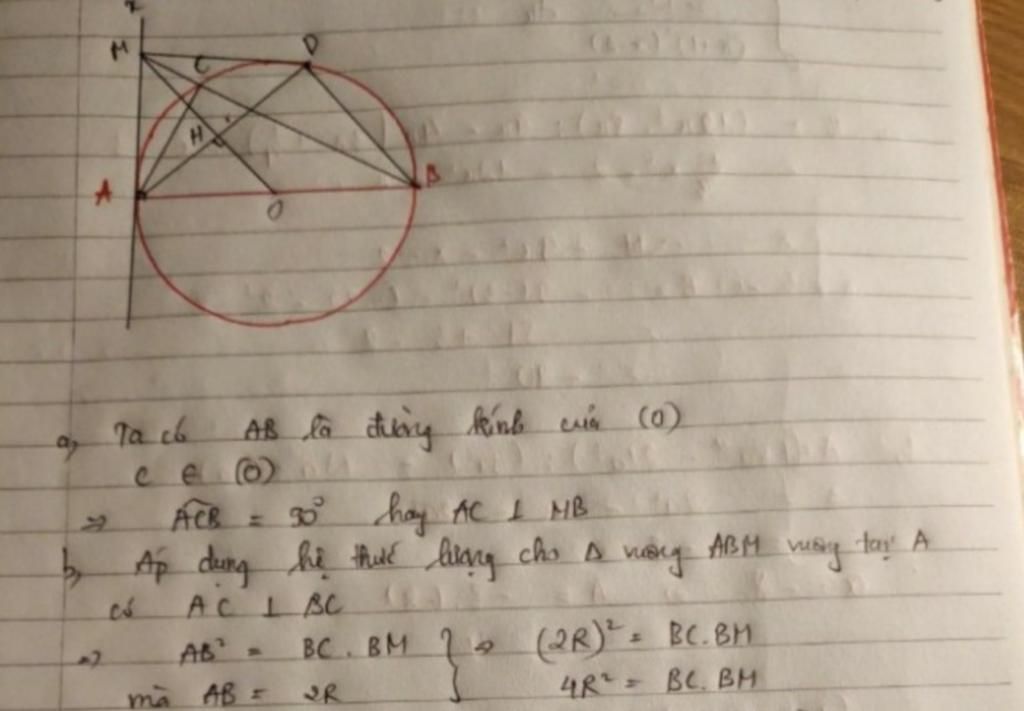 x
M
C
D
H
A
O
B
a, Ta có AB là đường kính của (O)
C ∈ (O)
=> ACB = 90° hay AC ⊥ MB
b, Áp dụng hệ thức lượng cho Δ vuông ABM vuông tại A
có AC ⊥ BC
=> AB² = BC . BM } => (2R)² = BC.BM
mà AB = 2R 4R² = BC.BM